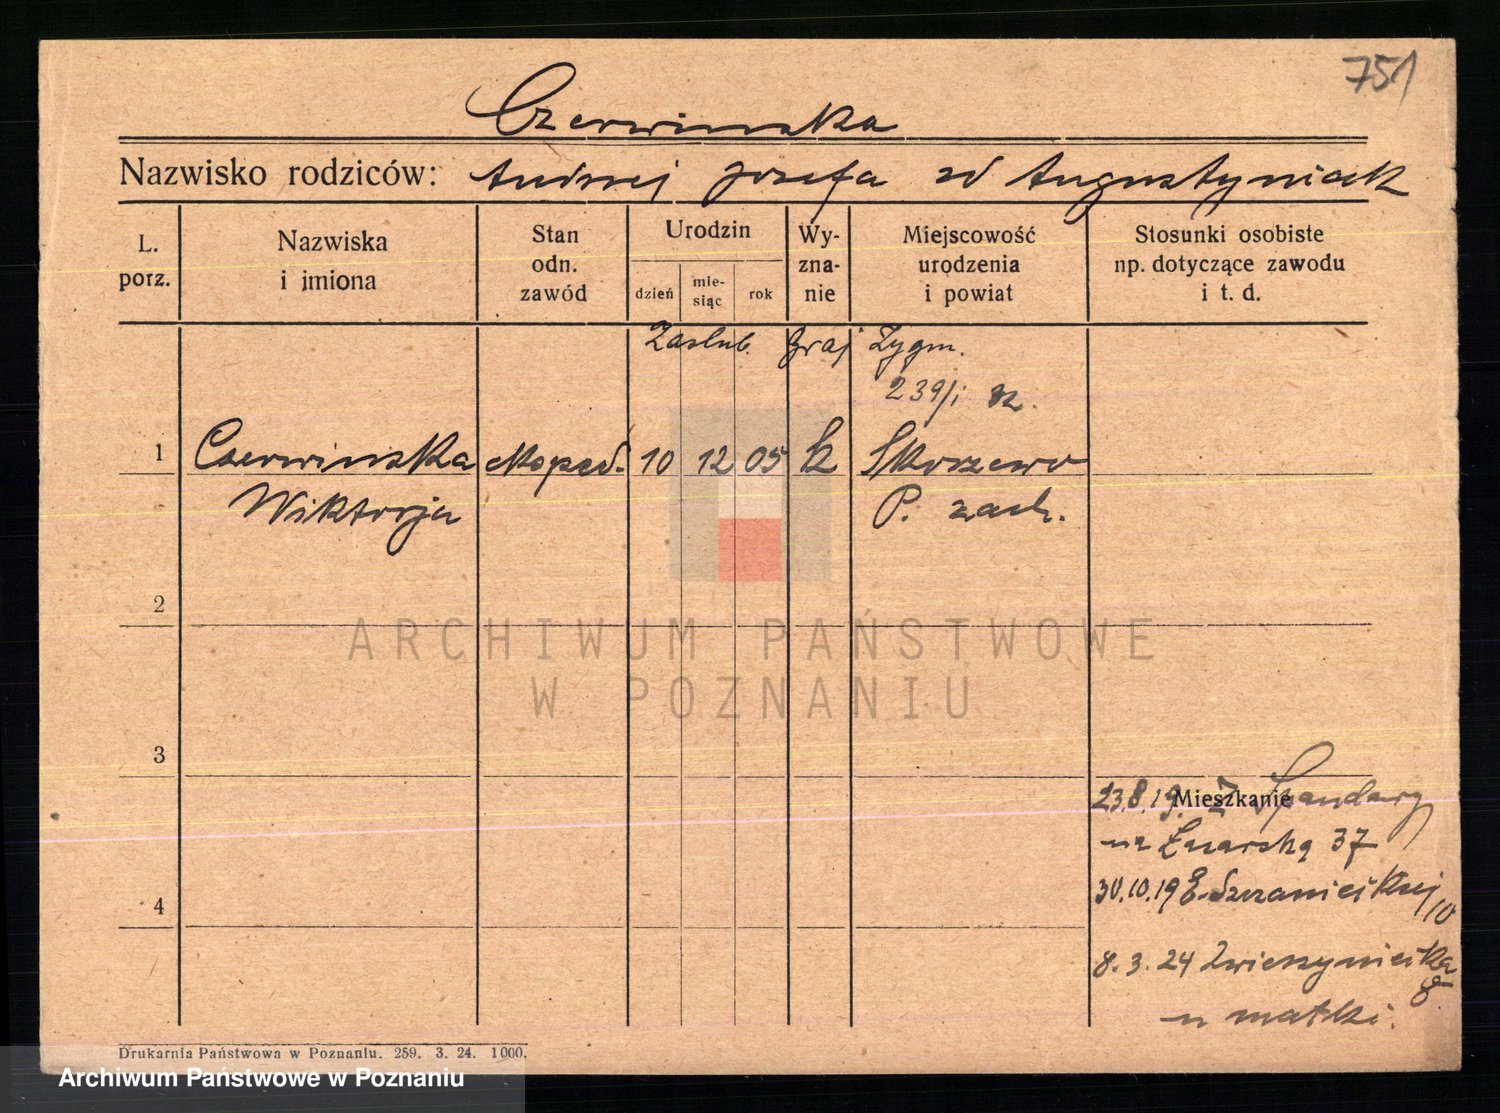 751
Czerwinska
Nazwisko rodziców: Andrzej Jozefa zd Augustyniak
L. porz.
Nazwiska i imiona
Stan odn. zawód
Urodzin
dzień
mie- siąc
rok
Wy- zna- nie
Miejscowość urodzenia i powiat
Stosunki osobiste np. dotyczące zawodu i t. d.
Zaslub. Graj Zygm.
239/i
1 Czerwinska eksped. 10 12 05 k Skorzewo
Wiktorja P. zach.
2
3
4
Mieszkanie
23.8.19 z Spandawy
na Łazarską 37
30.10.19 E. Szczanieckiej 10
8.3.24 Zwierzyniecka 8
u matki.
Drukarnia Państwowa w Poznaniu. 259. 3. 24. 1000.
ARCHIWUM PAŃSTWOWE
W POZNANIU
Archiwum Państwowe w Poznaniu